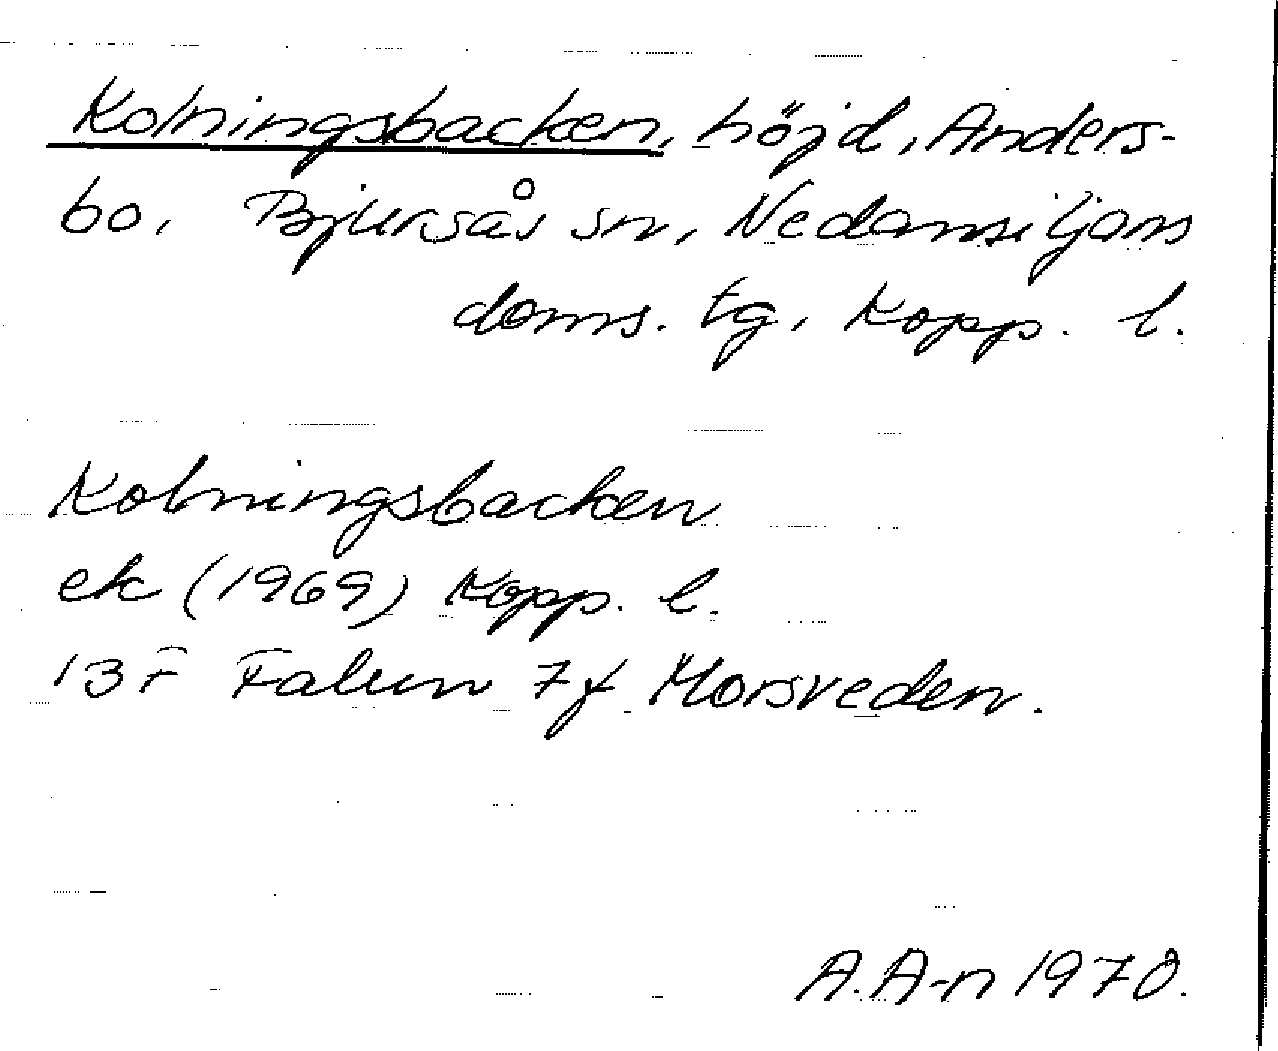 Kolningsbacken, höjd, Anders-
bo, Bjursås sn, Nedansiljans
doms. tg, Kopp. l.
Kolningsbacken
ek (1969) Kopp. l.
13F Falun 7f Morsveden.
A.A-n 1970.